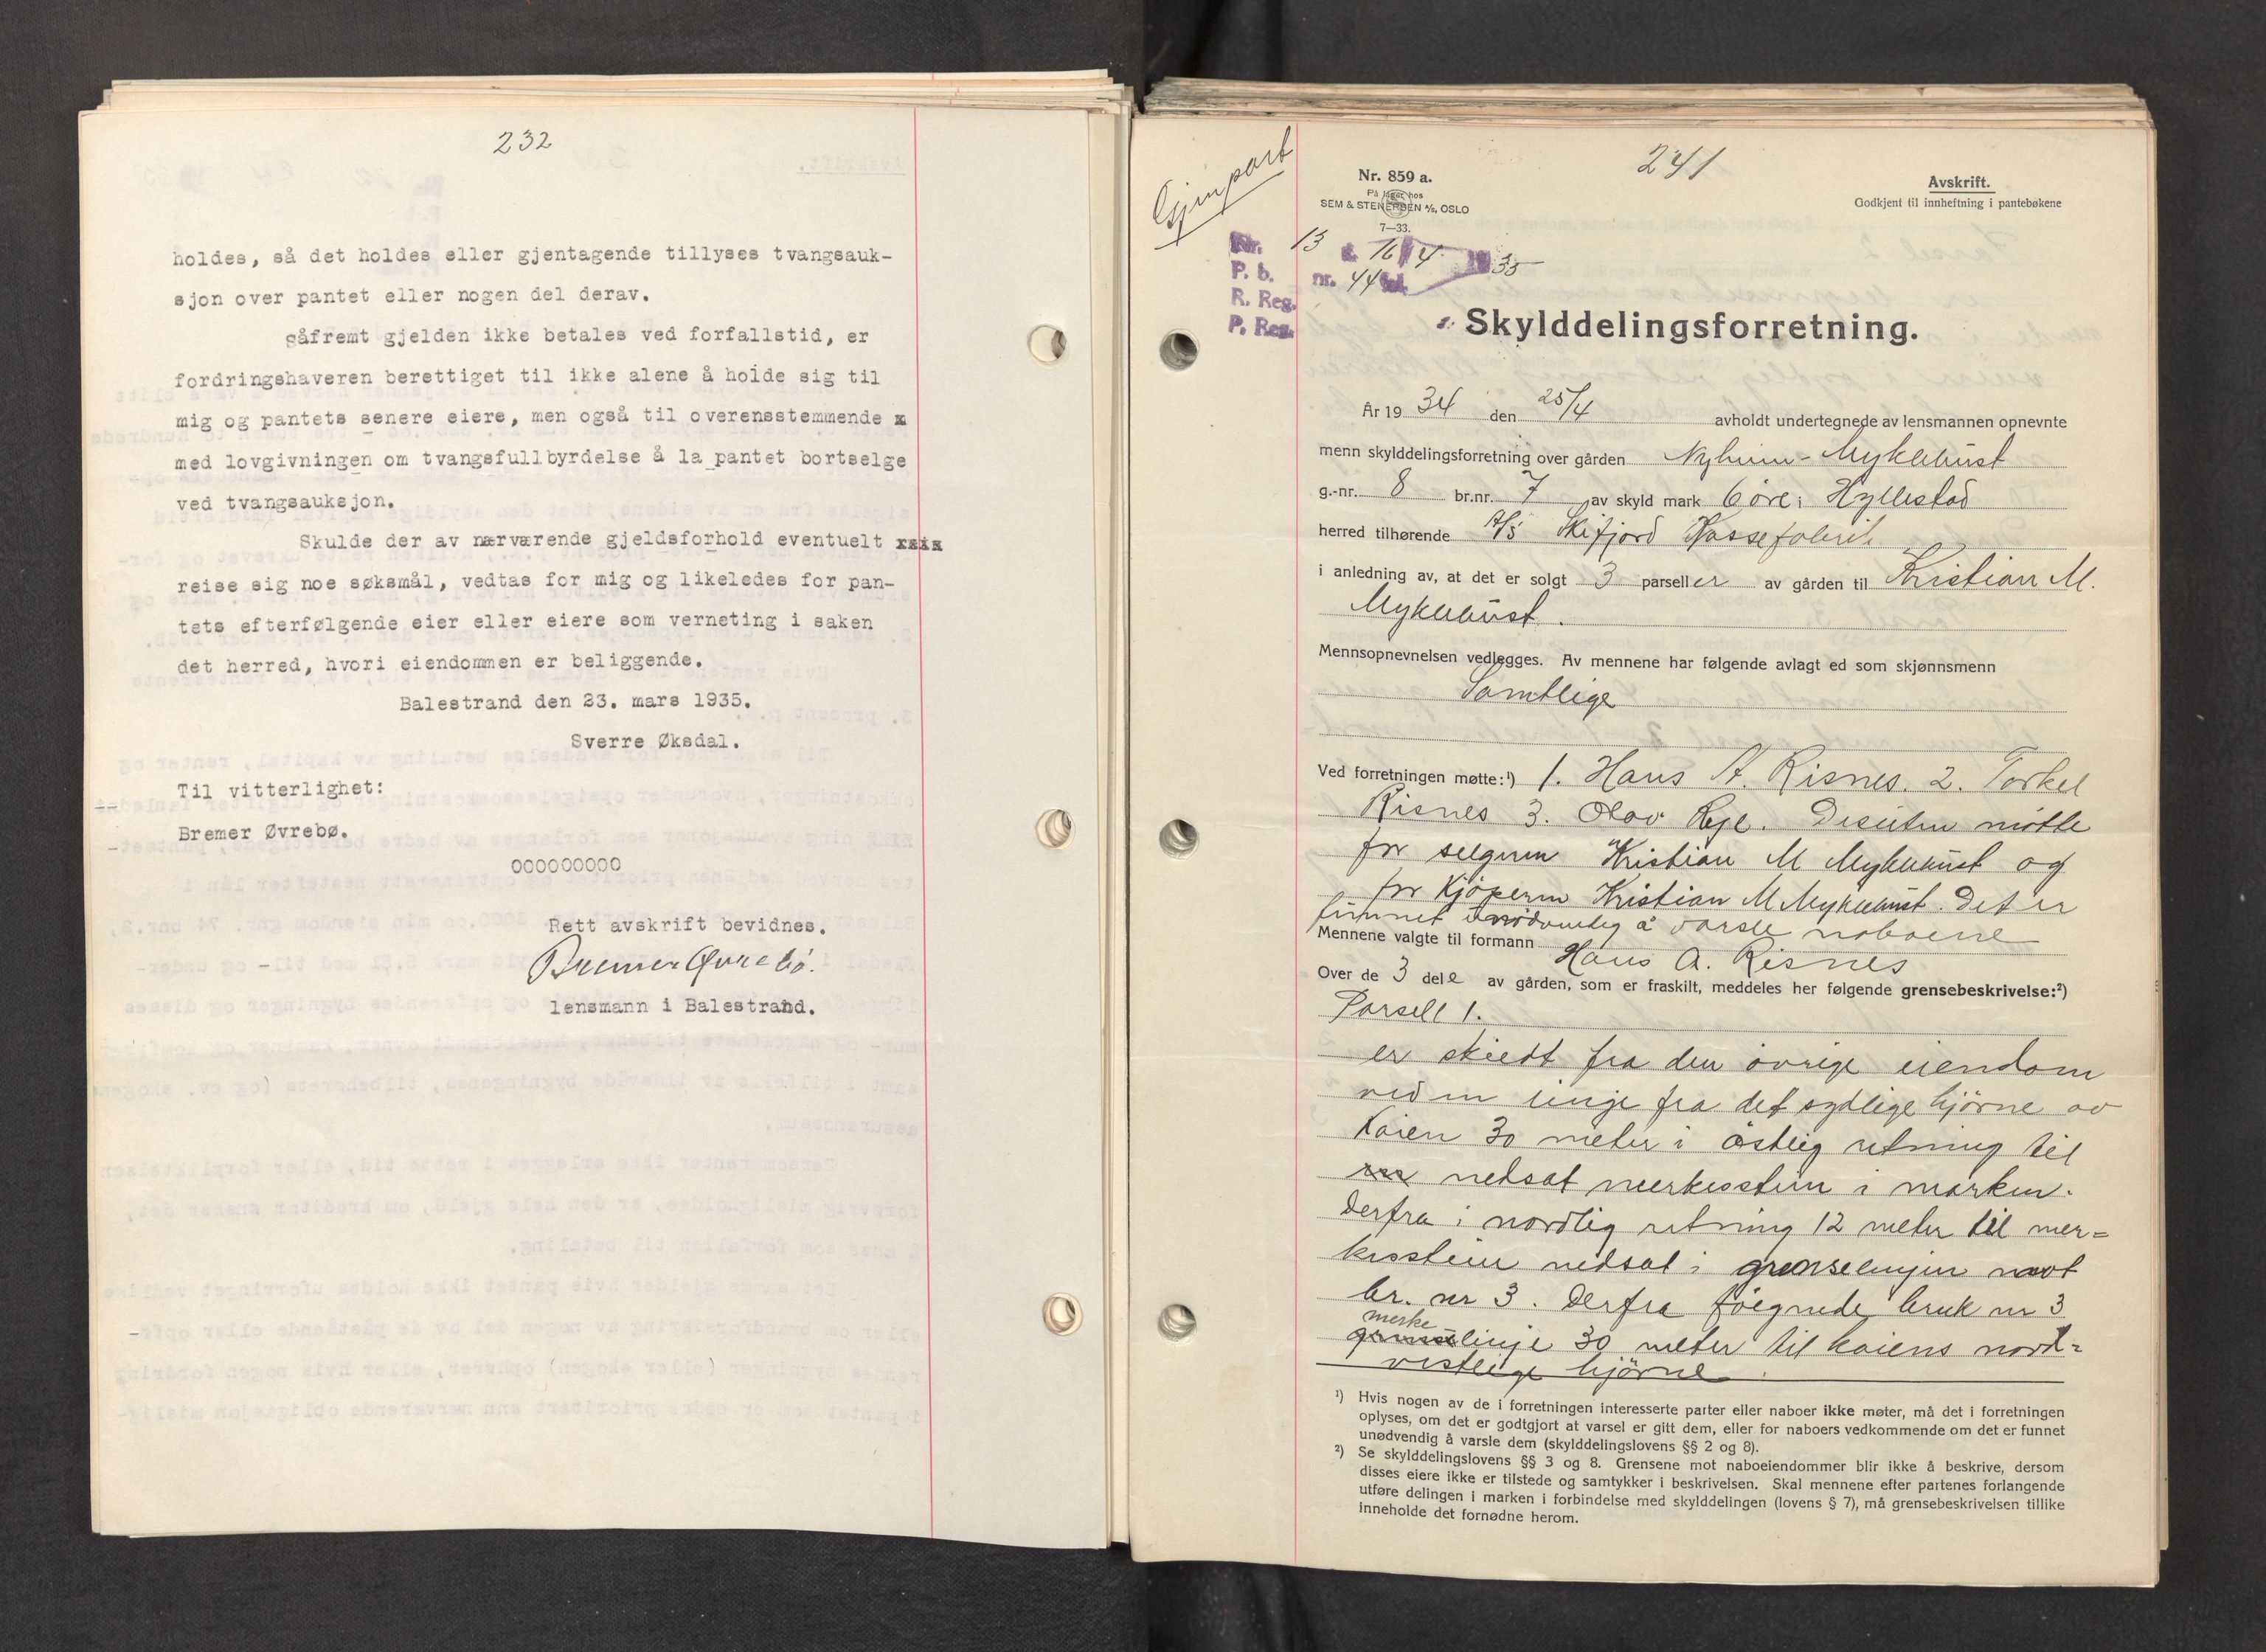 232
holdes, så det holdes eller gjentagende tillyses tvangsauk-
sjon over pantet eller nogen del derav.
såfremt gjelden ikke betales ved forfallstid, er
fordringshaveren berettiget til ikke alene å holde sig til
mig og pantets senere eiere, men også til overensstemmende x
med lovgivningen om tvangsfullbyrdelse å la pantet bortselge
ved tvangsauksjon.
Skulde der av nærværende gjeldsforhold eventuelt
reise sig noe søksmål, vedtas for mig og likeledes for pan-
tets efterfølgende eier eller eiere som verneting i saken
det herred, hvori eiendommen er beliggende.
Balestrand den 23. mars 1935.
Sverre Øksdal.
Til vitterlighet:
Bremer Øvrebø.
ooooooooo
Rett avskrift bevidnes.
Bremer Øvrebø.
lensmann i Balestrand.
Gjenpart
241
Nr. 859 a.
På lager hos
SEM & STENERSEN A/S, OSLO
7—33.
Avskrift.
Godkjent til innheftning i pantebøkene
Nr. 13 16/4 1935
P. b. nr. 44
R. Reg.
P. Reg.
Skylddelingsforretning.
År 1934 den 25/4 avholdt undertegnede av lensmannen opnevnte
menn skylddelingsforretning over gården Nyheim-Myklebust
g.-nr. 8 br.nr. 7 av skyld mark 6 øre i Hyllestad
herred tilhørende A/S Skifjord Kassefabrik
i anledning av, at det er solgt 3 parseller av gården til Kristian M.
Myklebust.
Mennsopnevnelsen vedlegges. Av mennene har følgende avlagt ed som skjønnsmenn
Samtlige
Ved forretningen møtte:¹) 1. Hans A. Risnes. 2. Torkel
Risnes 3. Olav Eye. Desuten møtte
for selgeren Kristian M Myklebust og
for kjøperen Kristian M Myklebust. Det er
funnet unødvendig å varsle naboene
Mennene valgte til formann Hans A. Risnes
Over de 3 dele av gården, som er fraskilt, meddeles her følgende grensebeskrivelse:²)
Parsell 1.
er skiedt fra den øvrige eiendom
ved en linje fra det sydlige hjørne av
Kaien 30 meter i østlig retning til
nedsat merkesstein i marken.
Derfra i nordlig retning 12 meter til mer=
kesstein nedsat i grenselinjen mot
br. nr 3. Derfra følgende bruk nr 3
merke
grenselinje 30 meter til kaiens nord=
vestlige hjørne.
¹) Hvis nogen av de i forretningen interesserte parter eller naboer ikke møter, må det i forretningen
oplyses, om det er godtgjort at varsel er gitt dem, eller for naboers vedkommende om det er funnet
unødvendig å varsle dem (skylddelingslovens §§ 2 og 8).
²) Se skylddelingslovens §§ 3 og 8. Grensene mot naboeiendommer blir ikke å beskrive, dersom
disses eiere ikke er tilstede og samtykker i beskrivelsen. Skal mennene efter partenes forlangende
utføre delingen i marken i forbindelse med skylddelingen (lovens § 7), må grensebeskrivelsen tillike
inneholde det fornødne herom.